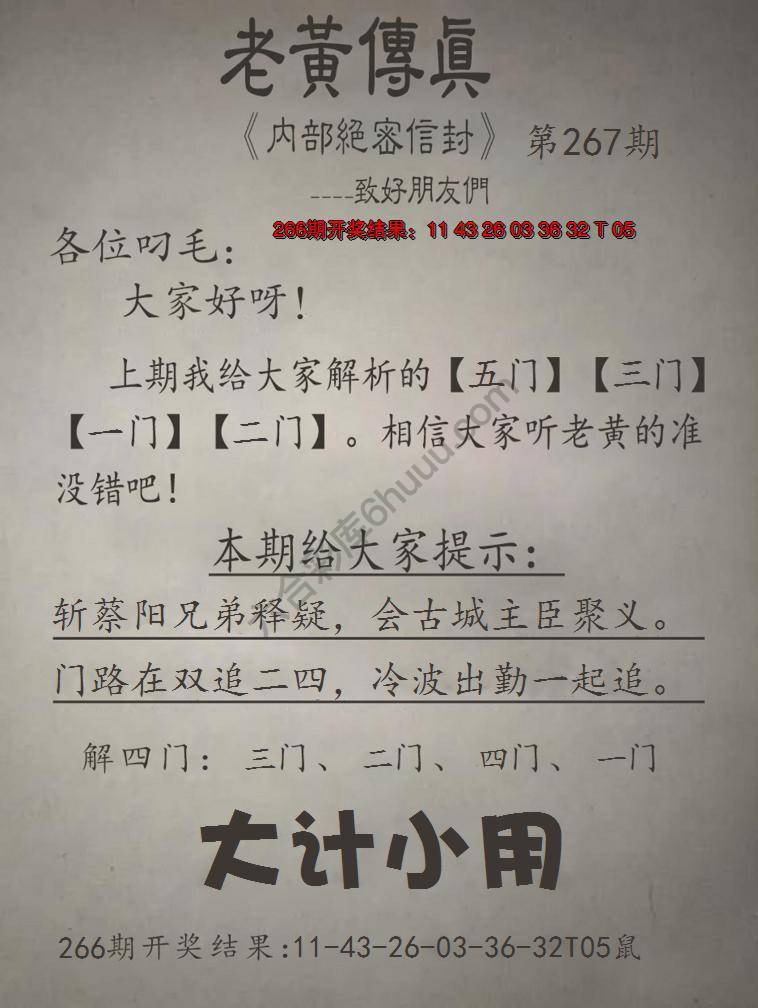 老黃傳眞
《内部絕密信封》 第267期
----致好朋友們
266期开奖结果：11 43 26 03 36 32 T 05
各位叼毛：
大家好呀！
上期我给大家解析的【五门】【三门】
【一门】【二门】。相信大家听老黄的准
没错吧！
本期给大家提示：
斩蔡阳兄弟释疑，会古城主臣聚义。
门路在双追二四，冷波出勤一起追。
解四门： 三门、 二门、 四门、 一门
大计小用
266期开奖结果:11-43-26-03-36-32T05鼠
六合彩库6huuu.com